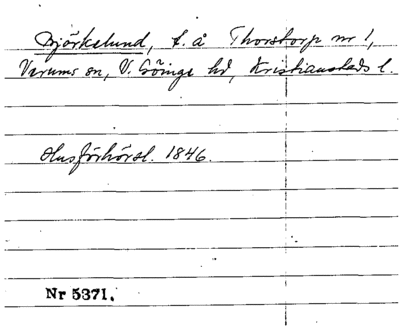 Björkelund, t. å Thorstorp nr 1,
Verums sn, V. Göinge hd, Kristianstads l.
Husförhörsl. 1846.
Nr 5371.